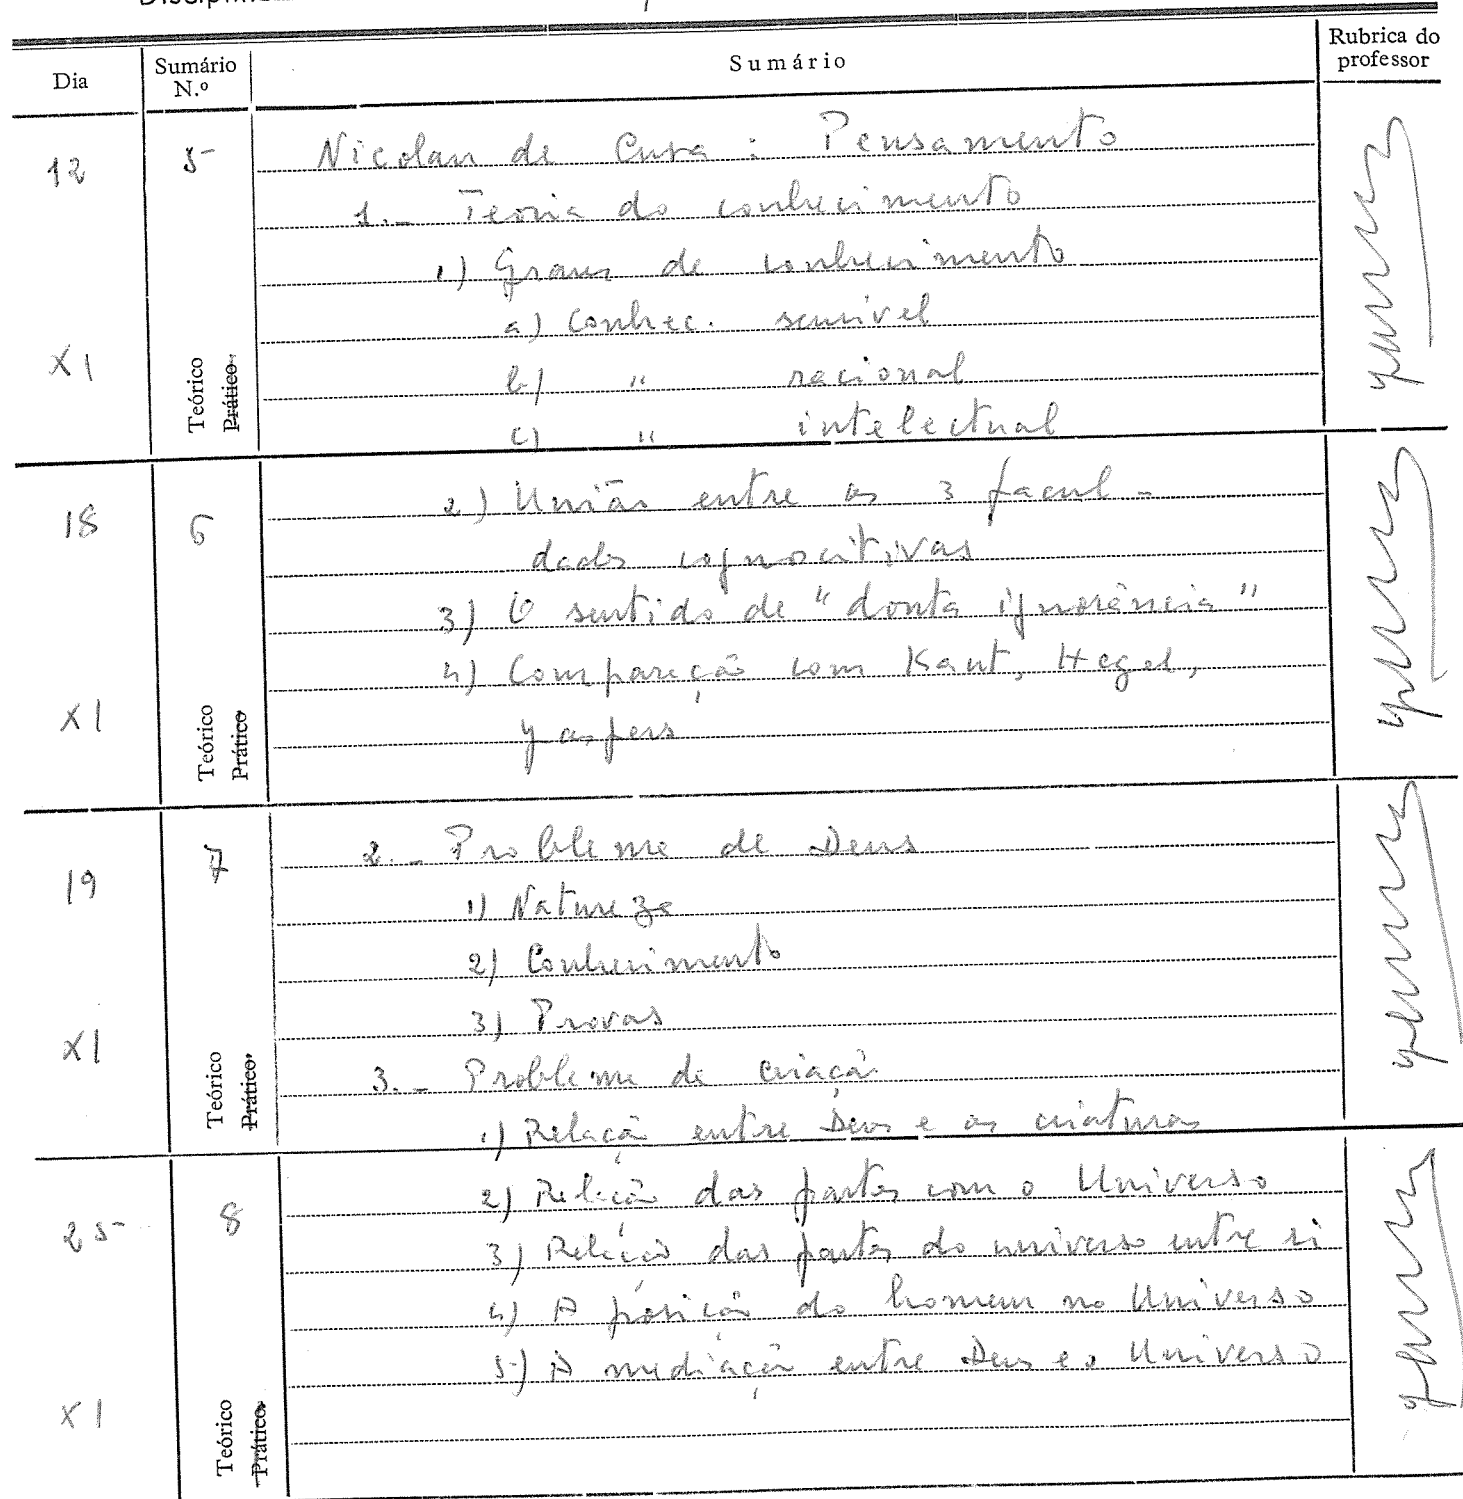 Dia
Sumário N.º
Sumário
Rubrica do professor
12
5
XI
Teórico
Prático
Nicolau de Cusa : Pensamento
1.- Teoria do conhecimento
1) Graus de conhecimento
a) Conhec. sensível
b) " racional
c) " intelectual
18
6
XI
Teórico
Prático
2) União entre as 3 facul-
dades cognoscitivas
3) O sentido de "douta ignorância"
4) Comparação com Kant, Hegel,
Yaspers
19
7
XI
Teórico
Prático
2.- Problema de Deus
1) Natureza
2) Conhecimento
3) Provas
3.- Problema da criação
1) Relação entre Deus e as criaturas
25
8
XI
Teórico
Prático
2) Relação das partes com o Universo
3) Relação das partes do universo entre si
4) A posição do homem no Universo
5) A mediação entre Deus e o Universo